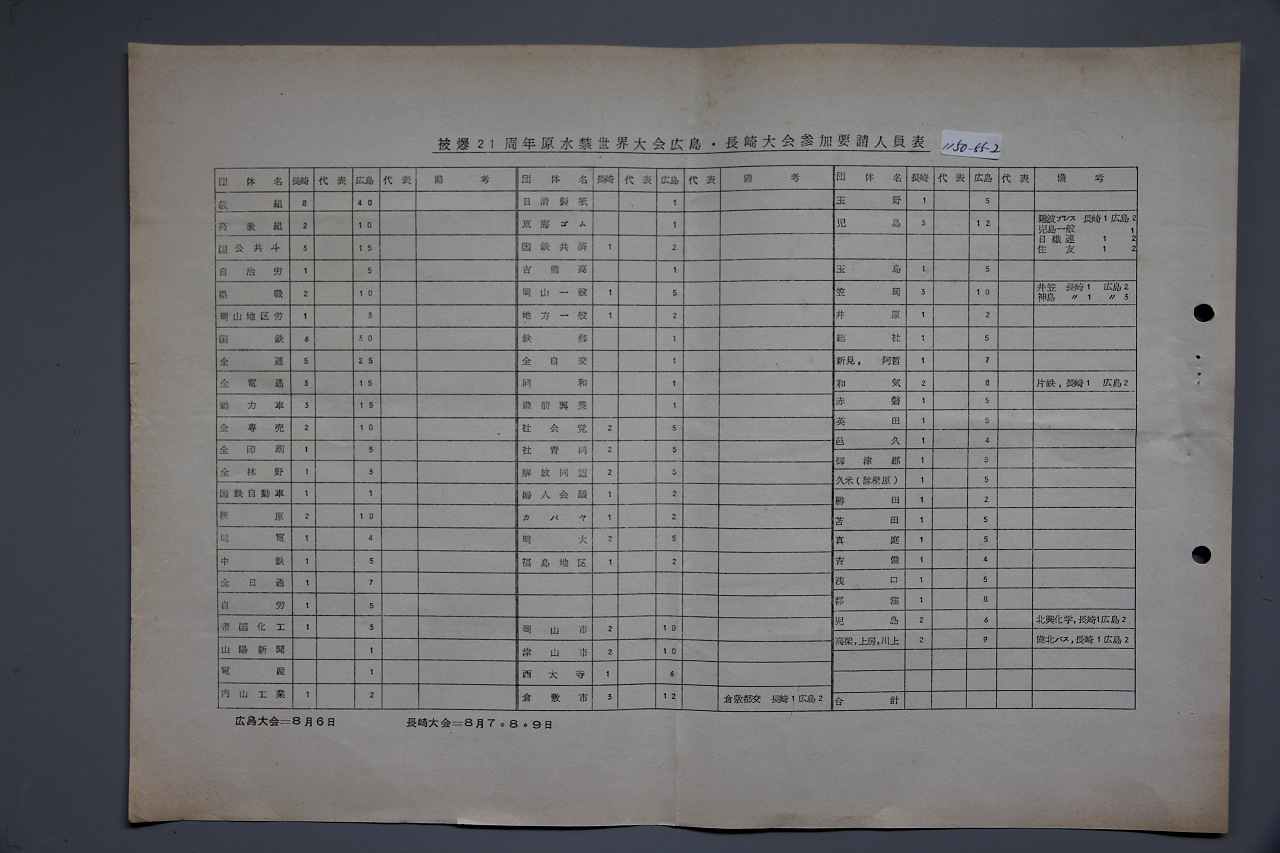 被爆21周年原水禁世界大会広島・長崎大会参加要請人員表
1150-66-2
団体名 長崎 代表 広島 代表 備考
教組 8 40
高教組 2 10
国公共斗 3 15
自治労 1 5
県職 2 10
岡山地区労 1 3
国鉄 6 30
全逓 5 25
全電通 3 15
動力車 3 15
全専売 2 10
全印刷 1 5
全林野 1 3
国鉄自動車 1 1
2 10
岡電 1 4
中鉄 1 5
全日通 1 7
自労 1 5
帝国化工 1 3
山陽新聞 1
電産 1
内山工業 1 2
団体名 長崎 代表 広島 代表 備考
日清製紙 1
東海ゴム 1
国鉄共済 1 2
吉備高 1
岡山一般 1 5
地方一般 1 2
鉄郵 1
全自交 1
同和 1
備前興業 1
社会党 2 5
社青同 2 5
解放同盟 2 5
婦人会議 1 2
カバヤ 1 2
岡大 2 5
福島地区 1 2
岡山市 2 10
津山市 2 10
西大寺 1 6
倉敷市 3 12 倉敷都交 長崎1広島2
団体名 長崎 代表 広島 代表 備考
玉野 1 5
児島 3 12 難波プレス 長崎1広島2
児島一般 1
日繊連 1 2
住友 1 2
玉島 1 5
笠岡 3 10 井笠 長崎1 広島2
神島 〃1 〃3
井原 1 2
総社 1 5
新見,阿哲 1 7
和気 2 8 片鉄,長崎1 広島2
赤磐 1 5
英田 1 5
邑久 1 4
御津郡 1 5
久米(除柵原) 1 5
勝田 1 2
苫田 1 5
真庭 1 5
吉備 1 4
浅口 1 5
都窪 1 8
児島 2 6 北興化学,長崎1広島2
高梁,上房,川上 2 9 備北バス,長崎1広島2
合計
広島大会=8月6日 長崎大会=8月7。8。9日